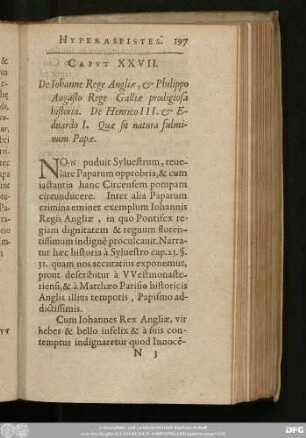 HYPERASPISTES. 197
CAPVT XXVII.
De Iohanne Rege Angliæ, & Philippo
Augusto Rege Galliæ prodigiosa
historia. De Henrico III. & E-
duardo I. Quæ sit natura fulmi-
num Papæ.
NON puduit Syluestrum, reue-
lare Paparum opprobria, & cum
iactantia hanc Circensem pompam
circunducere. Inter alia Paparum
crimina eminet exemplum Iohannis
Regis Angliæ, in quo Pontifex re-
giam dignitatem & regnum floren-
tissimum indignè proculcauit. Narra-
tur hæc historia à Syluestro cap. 23. §.
31. quam nos accuratiùs exponemus,
prout describitur à VVestmonaste-
riensi, & à Matthæo Parisio historicis
Anglis illius temporis, Papismo ad-
dictissimis.
Cum Iohannes Rex Angliæ, vir
hebes & bello infelix & à suis con-
temptus indignaretur quod Innocē-
N 3
DFG